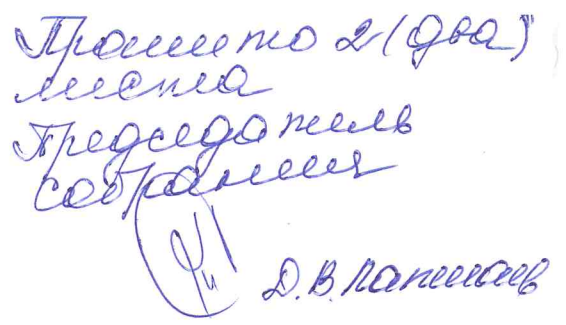 Прошито 2 (два)
листа
Председатель
собрания
Д.В.